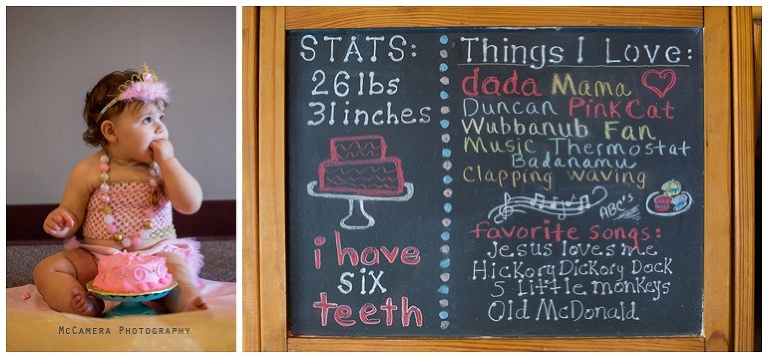 McCamera Photography
STATS:
26lbs
31inches
i have
six
teeth
Things I Love:
dada Mama
Duncan Pink Cat
Wubbanub Fan
Music Thermostat
Badanamu
Clapping waving
ABC's
favorite songs:
Jesus loves me
Hickory Dickory Dock
5 Little monkeys
Old McDonald